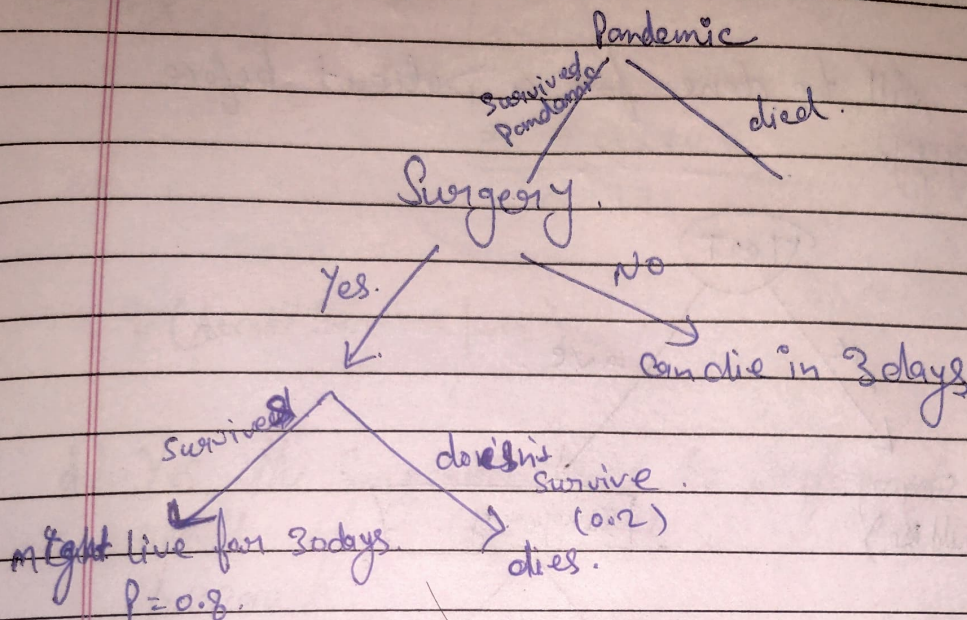 Pandemic
Survived
Pandemic
died.
Surgery.
Yes.
NO
Can die in 3 days
Survives
doesn't
survive.
(0.2)
dies.
might live for 30days.
P=0.8.